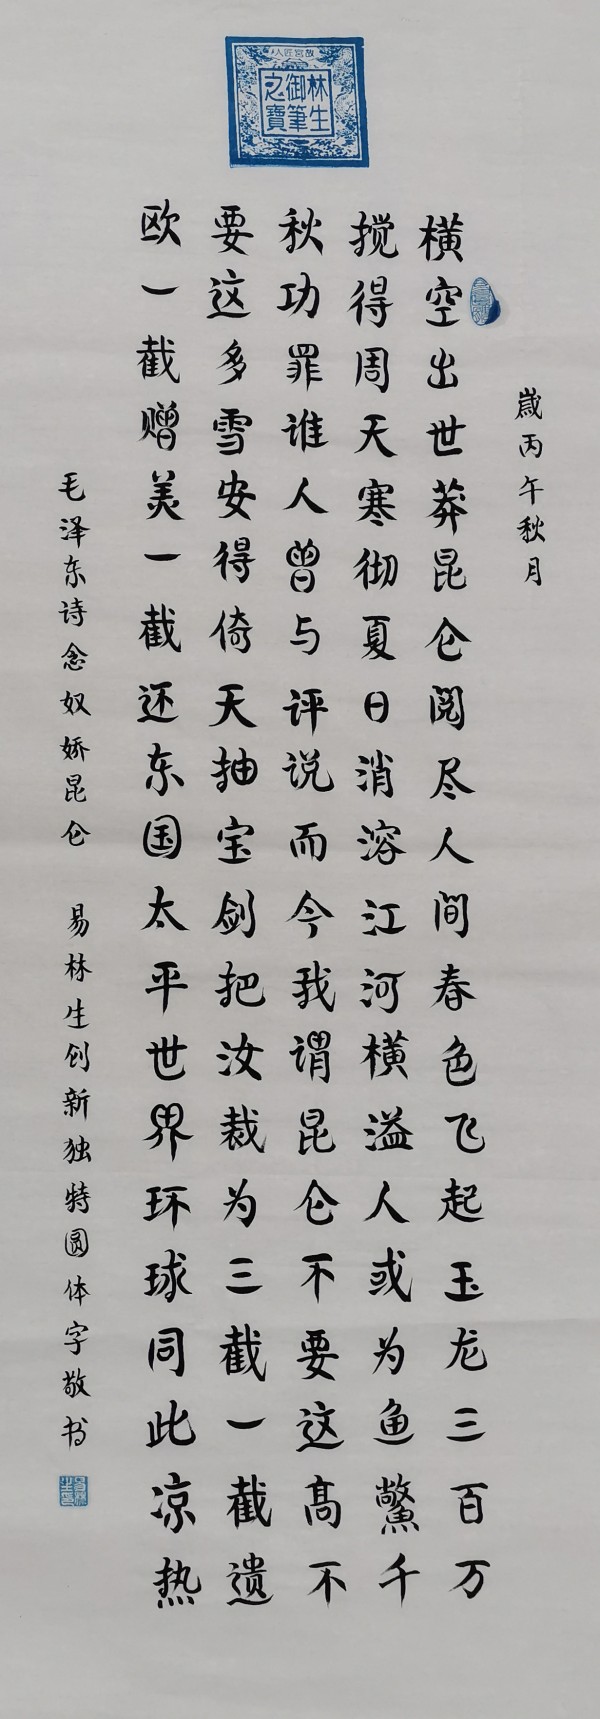 故宮匠人
林生御筆之寶
歲丙午秋月
横空出世莽昆仑阅尽人间春色飞起玉龙三百万
搅得周天寒彻夏日消溶江河横溢人或为鱼鱉千
秋功罪谁人曾与评说而今我谓昆仑不要这髙不
要这多雪安得倚天抽宝剑把汝裁为三截一截遗
欧一截赠美一截还东国太平世界环球同此凉热
毛泽东诗念奴娇昆仑 易林生创新独特圆体字敬书